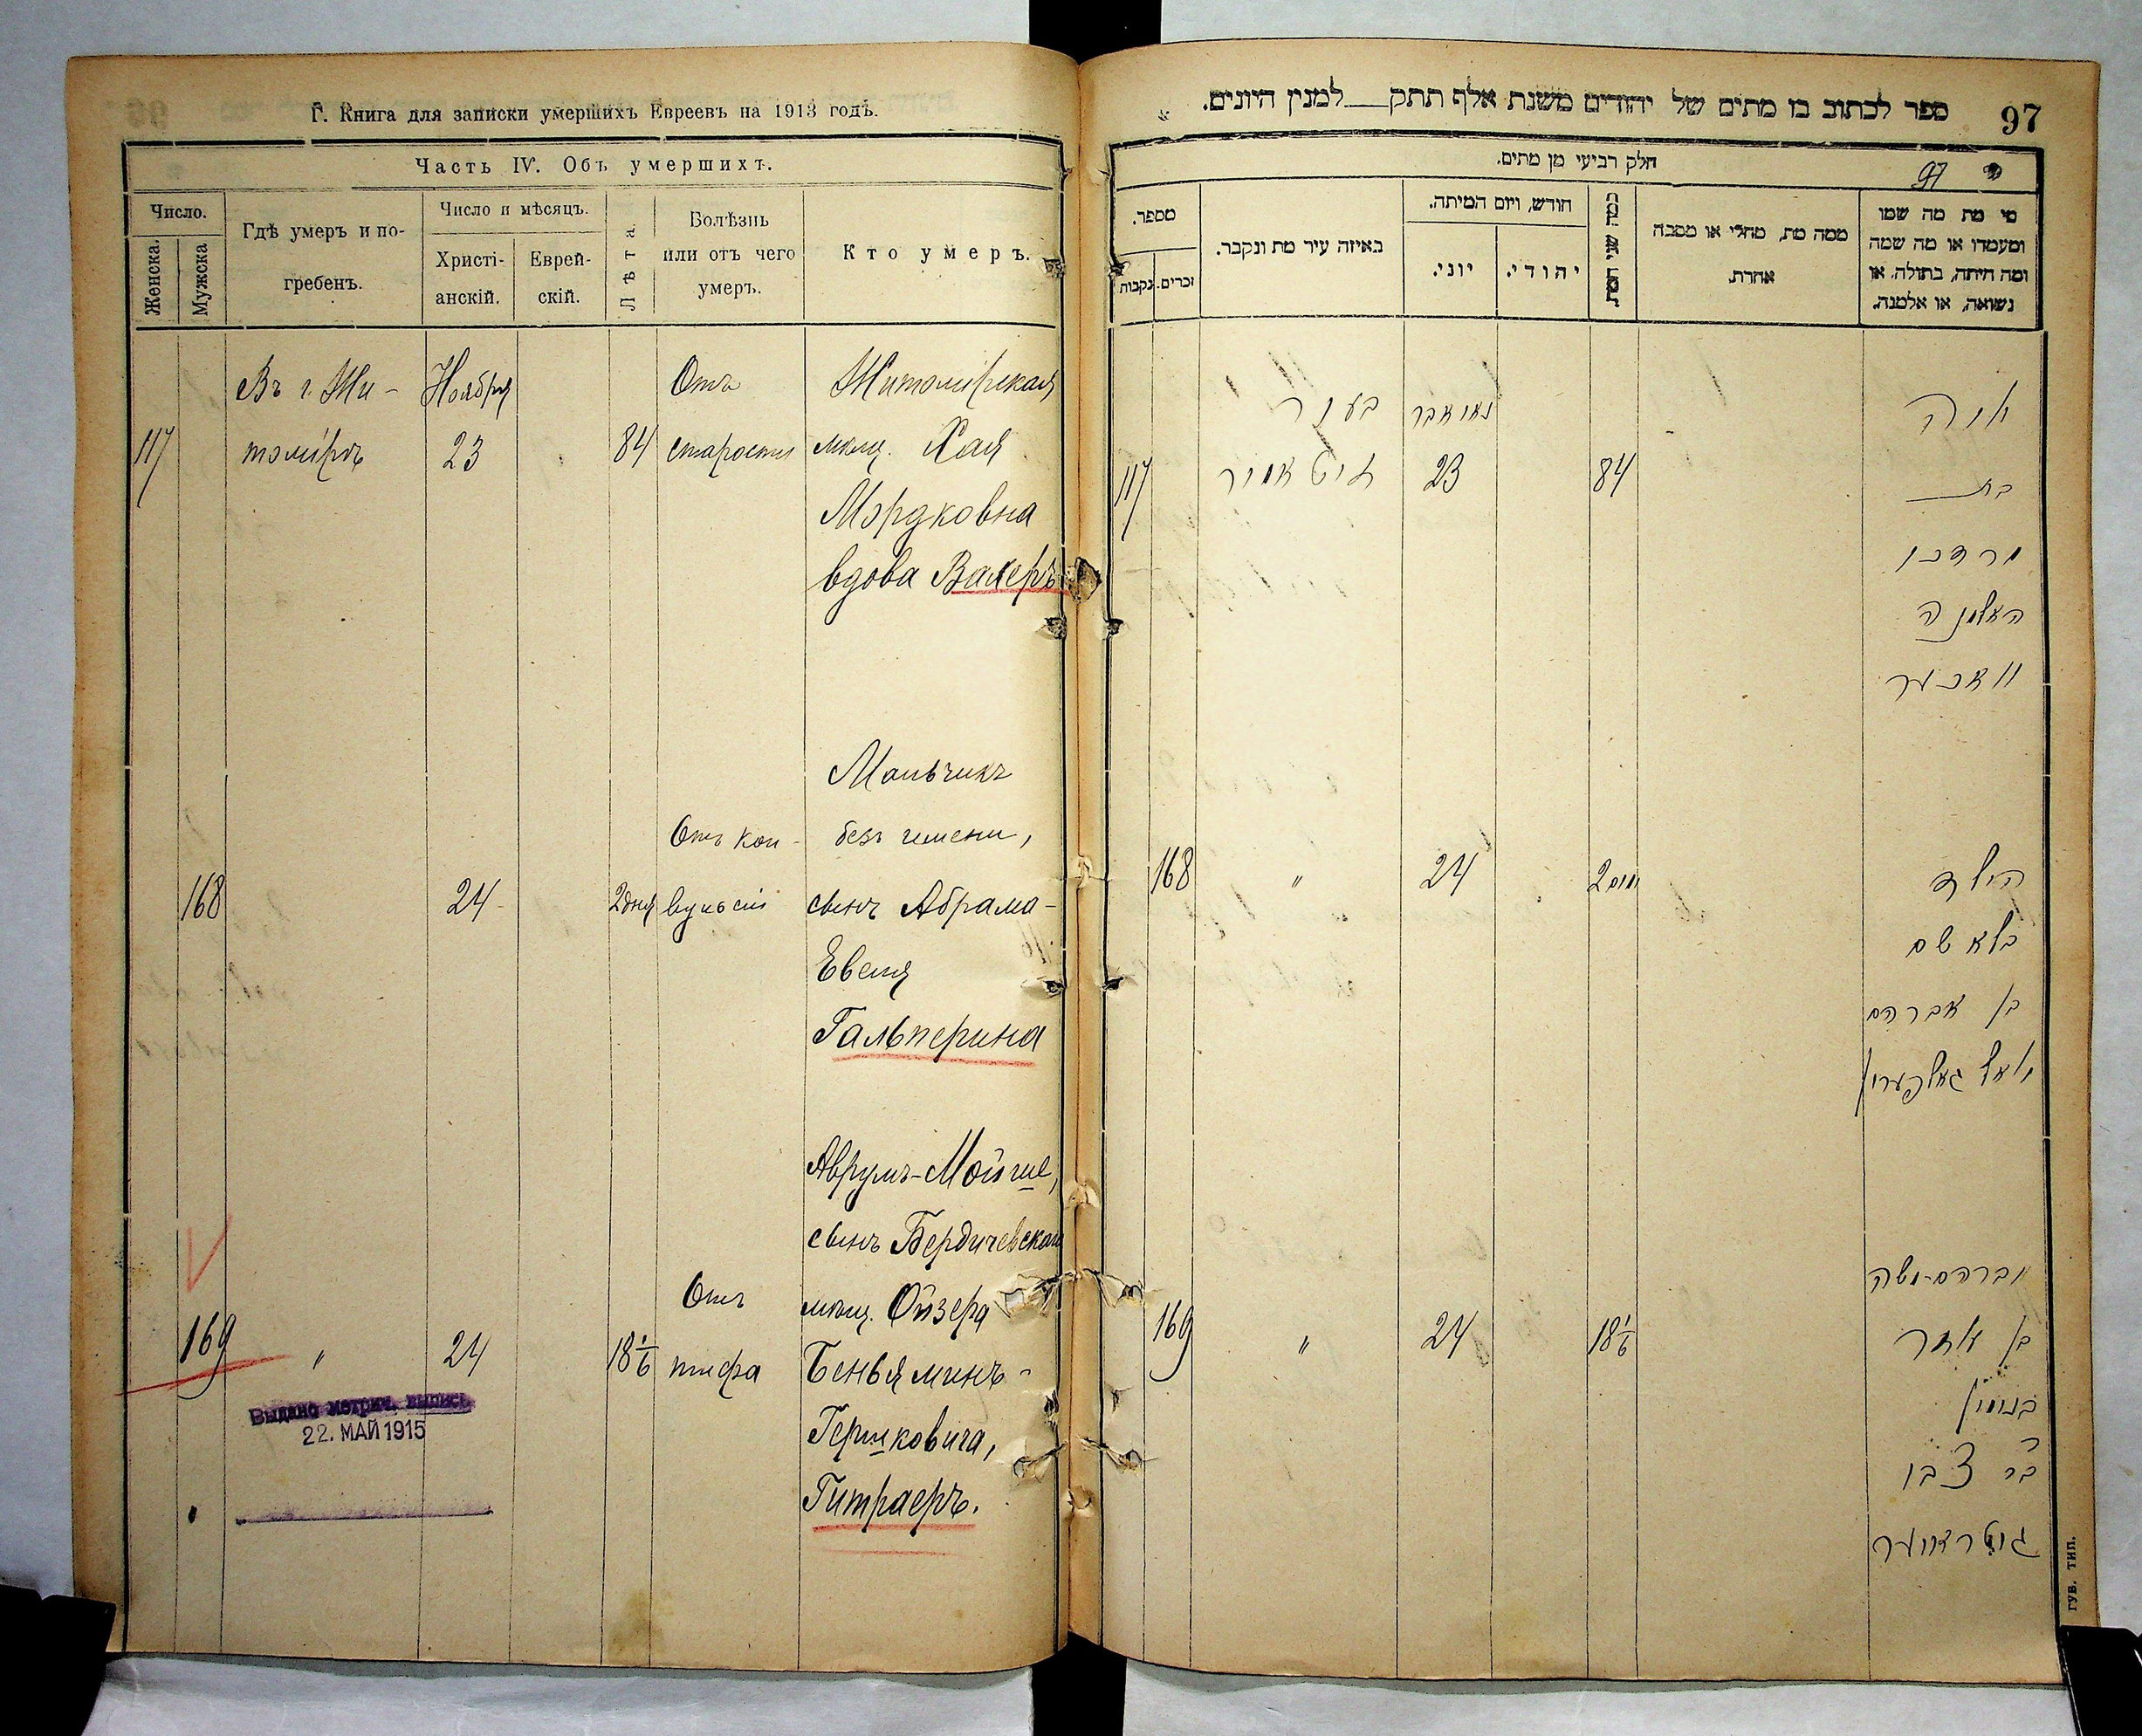 Г. Книга для записки умершихъ Евреевъ на 1913 годъ.
Часть IV. Объ умершихъ.
Число.
Женска.
Мужска
Гдѣ умеръ и по-
гребенъ.
Число и мѣсяцъ.
Христі-
анскій.
Еврей-
скій.
Лѣта.
Болѣзнь
или отъ чего
умеръ.
Кто умеръ.
117
Въ г. Жи-
томірѣ
Ноября
23
84
Отъ
старости
Житомірская
мѣщ. Хая
Мордковна
вдова Вахеръ
168
24
2 дня
Отъ кон-
вульсій
Мальчикъ
безъ имени,
сынъ Абрама-
Евеля
Гальперина
169
"
24
18 1/6
Отъ
тифа
Аврумъ-Мойше,
сынъ Бердичевскаго
мѣщ. Ойзера
Беньяминъ-
Гершковича,
Гитраеръ.
Выдана метрич. выпись
22. МАЙ 1915
ספר לכתוב בו מתים של יהודים משנת אלף תתק__למנין היונים.
97
חלק רביעי מן מתים.
97
מספר.
נקבות
זכרים.
באיזה עיר מת ונקבר.
חודש, ויום המיתה.
יוני.
יהודי.
כמה שני המת.
ממה מת, מחלי או מסבה
אחרת.
מי מת מה שמו
ומעמדו או מה שמה
ומה היתה, בתולה, או
נשואה, או אלמנה.
117
בעיר
זיטאמיר
נאואבר
23
84
חיה
בת
מרדכי
האלמנה
וואכער
168
"
24
2 ימים
הילד
בלא שם
בן אברהם
יואל גאלפערין
169
"
24
18 1/6
אברהם-משה
בן
בנימין
בר צבי
גיטרייער
ГУБ. ТИП.